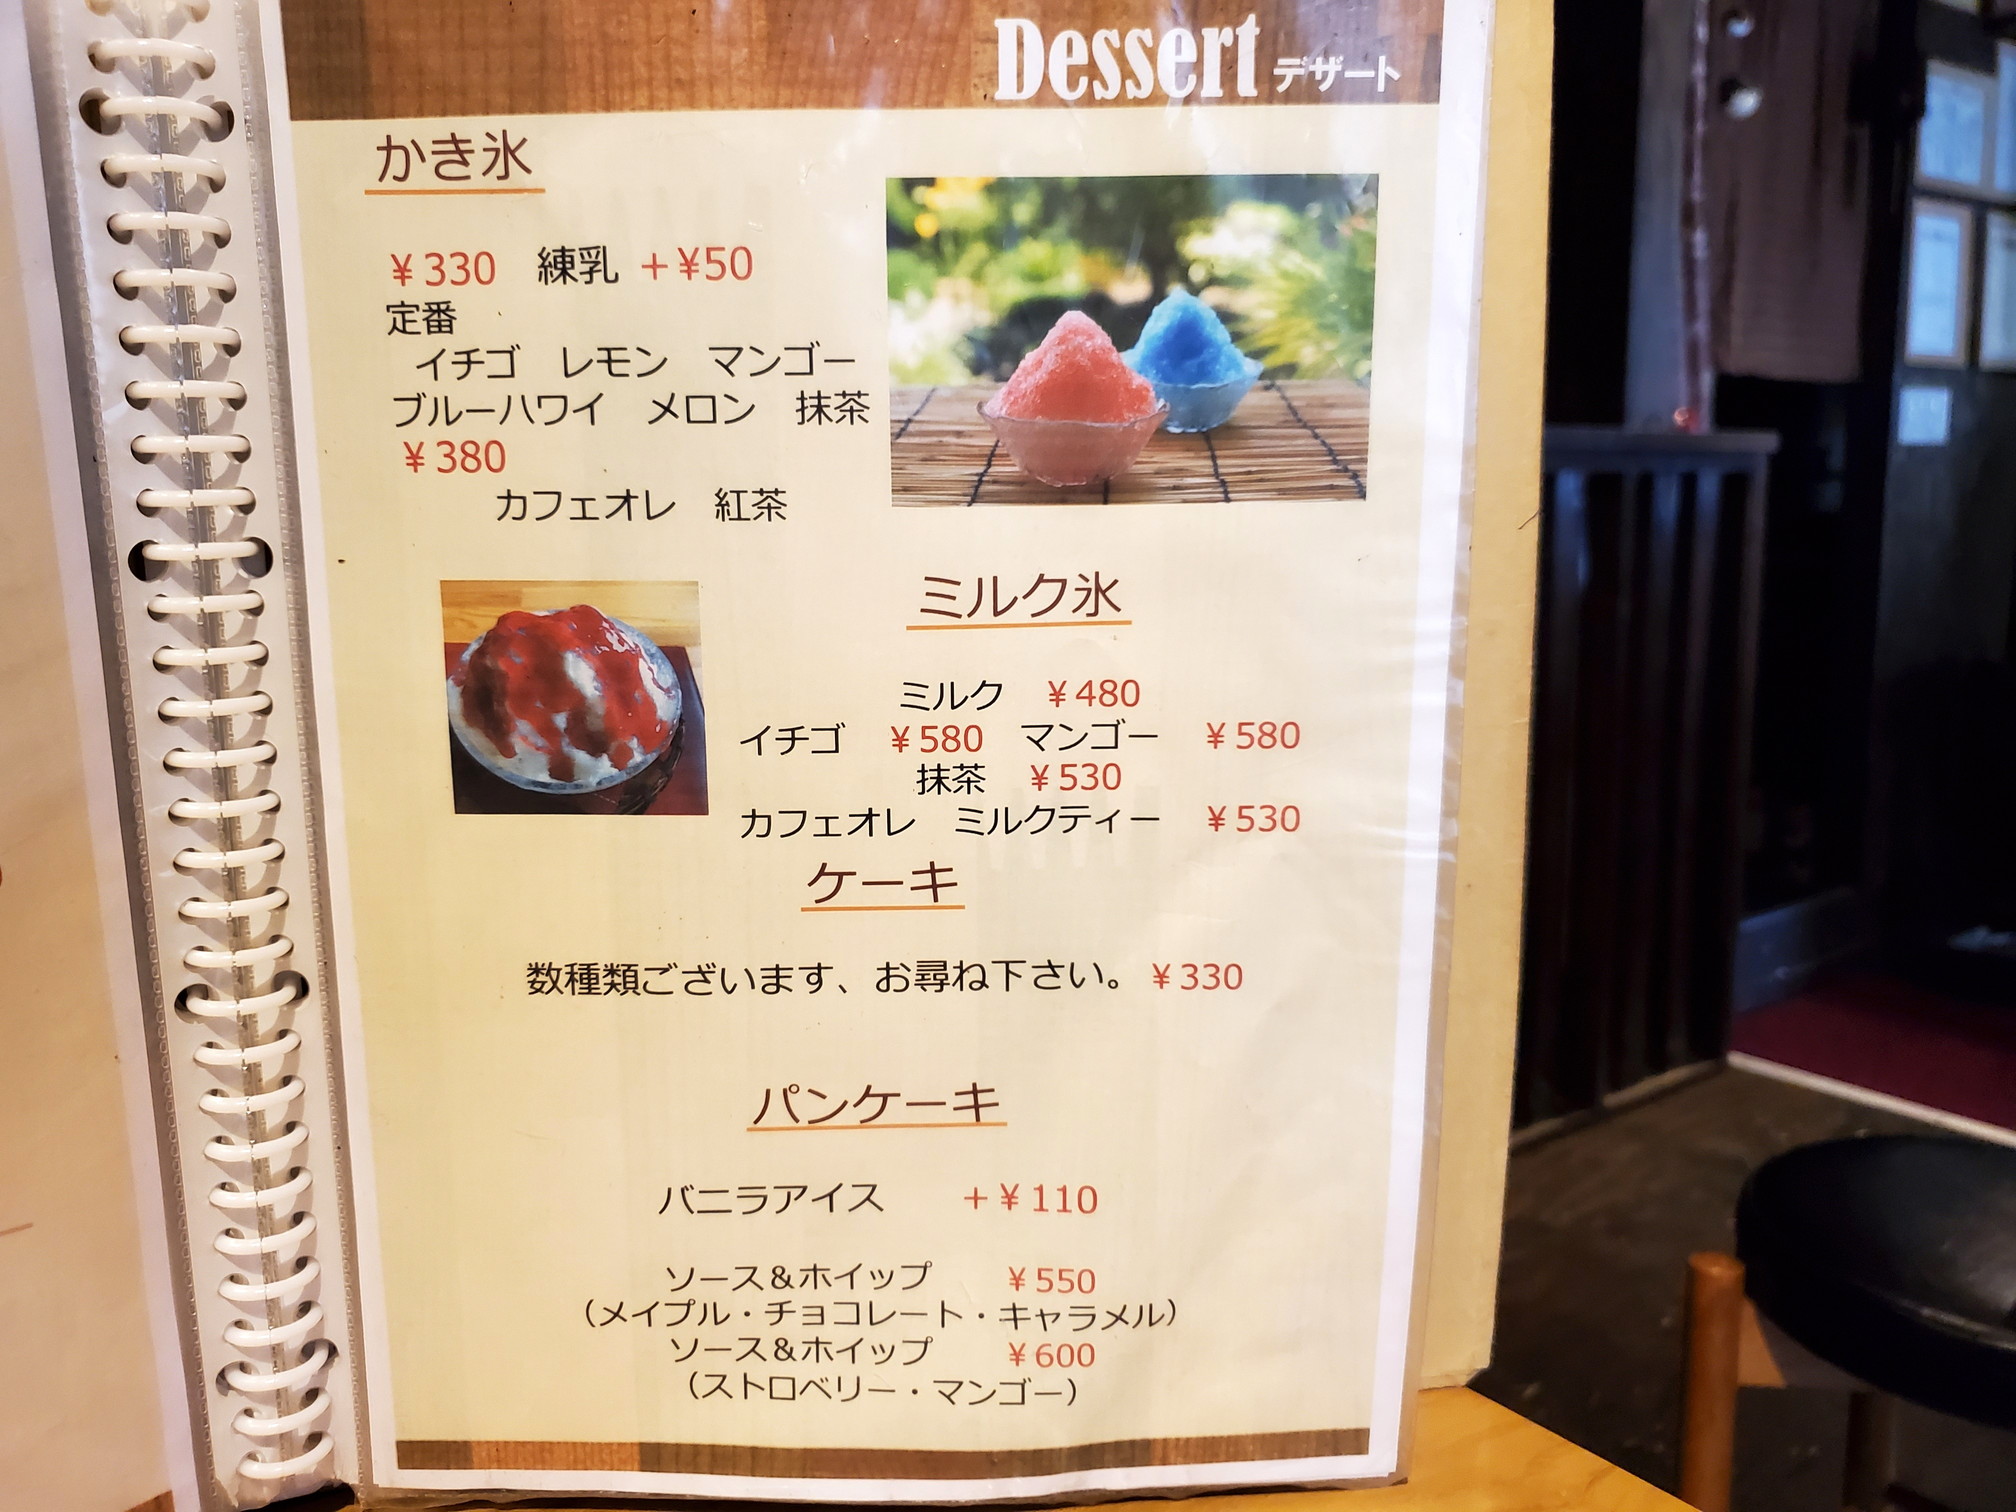 Dessert デザート
かき氷
￥330 練乳 +¥50
定番
イチゴ レモン マンゴー
ブルーハワイ メロン 抹茶
￥380
カフェオレ 紅茶
ミルク氷
ミルク ￥480
イチゴ ￥580 マンゴー ￥580
抹茶 ￥530
カフェオレ ミルクティー ￥530
ケーキ
数種類ございます、お尋ね下さい。￥330
パンケーキ
バニラアイス +￥110
ソース＆ホイップ ￥550
（メイプル・チョコレート・キャラメル）
ソース＆ホイップ ￥600
（ストロベリー・マンゴー）